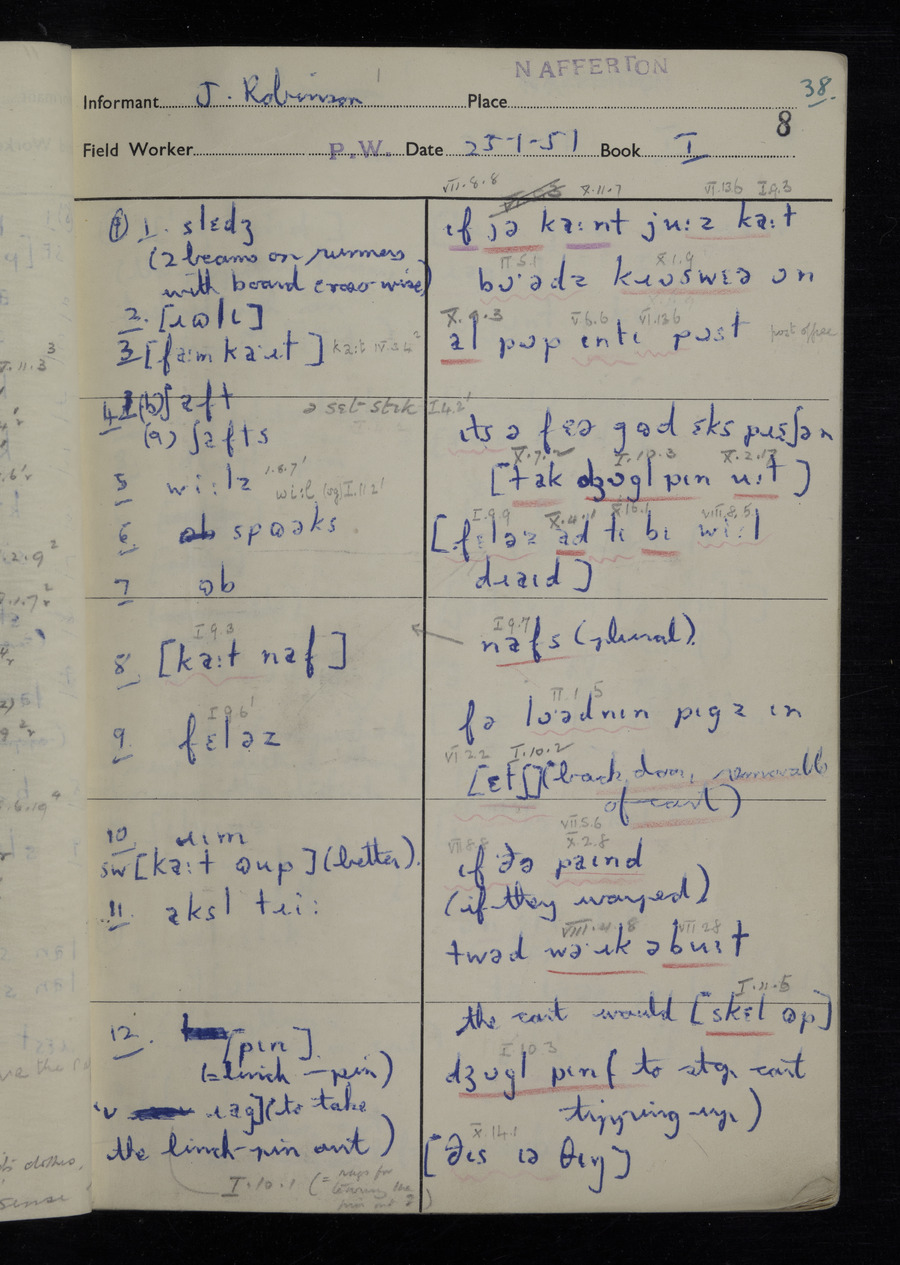 NAFFERTON
38.
Informant J. Robinson Place
8
Field Worker P.W. Date 25-1-51 Book I
VII.8.8 X.11.7 VI.13.6 I.9.3
1. slɛdʒ
(2 beams on runners
with board cross-wise)
2. [ɹɒlɪ]
3 [faːmkaːɹt] kaːt IV.3.4²
4 (b) ʃafts
(a) ʃafts
ə sɛt-stɪk I.4.2'
5 wiːlz 1.8.7'
wiːl (sg) I.11.2'
6 spɒaks
7 ɒb
I 9.3
8 [kaːt naf]
I 9.6'
9. fɛləz
10 ɹɪm
sw [kaːt ɒup] (better).
11. aksl tɹiː
12. [pɪn]
(= linch-pin)
ɹag] (to take
the linch-pin out)
I.10.1 (= rags for
tearing the
pin out ?)
ɪf jə kaːnt juːz kaːt
II 5.1 X.1.9
buədz kɹʊswɛə ʊn
X.9.3 V.6.6 VI.13.6
al pʊp ɪntɪ pʊst post office
ɪts ə fɛə gɒd ɛkspɹɛʃən
X.7.2 I.10.3 X.2.17
[tak dʒʊgl pɪn uːt]
I.9.9 X.4.11 X.16.1 VIII.8.5
[fɛləz ad tɪ bɪ wiːl
dɹaɪd]
I 9.7
nafs (plural).
II.1.5
fə luədnɪn pɪgz ɪn
VI 2.2 I.10.2
[ɛtʃ] (back door, removable
of cart)
VII 5.6
VII.8.8 X.2.8
ɪf ðə paɪnd
(if they warped)
VIII.4.8 VII 2.8
twəd waːɪk əbuːt
I.11.5
the cart would [skɛl ɒp]
I 10.3
dʒʊgl pɪn (to stop cart
tipping up)
X.14.1
[ðɪs ɪə θɪŋ]